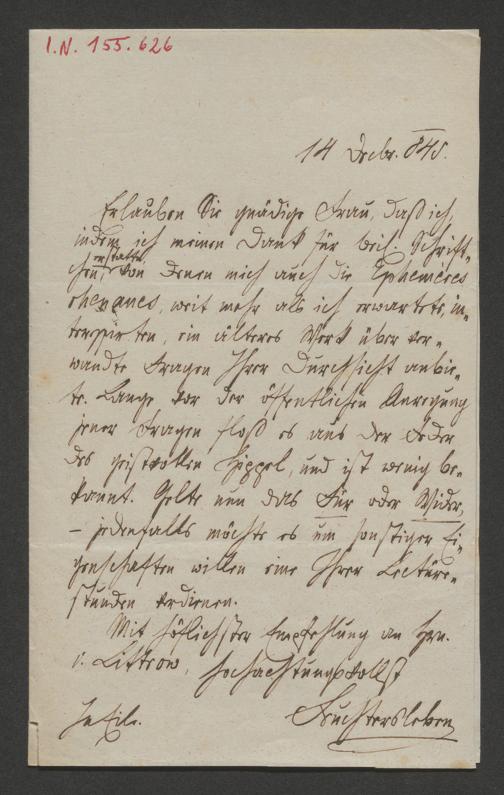 I.N. 155.626
14 Decbr. 845.
Erlauben Sie gnädige Frau, daß ich,
indem ich meinen Dank für beil. Schrift-
chen erstatte, von denen mich auch die Ephémères
rhénanes, weit mehr als ich erwartete, in-
teressirten, ein älteres Werk über ver-
wandte Fragen Ihrer Durchsicht anbie-
te. Lange vor der öffentlichen Anregung
jener Fragen floß es aus der Feder
des geistvollen Hippel, und ist wenig be-
kannt. Gelte nun das Für oder Wider,
– jedenfalls möchte es um sonstiger Ei-
genschaften willen eine Ihrer Lectüre-
stunden verdienen.
Mit höflichster Empfehlung an Hrn.
v. Littrow, hochachtungsvollst
In Eile. Feuchtersleben